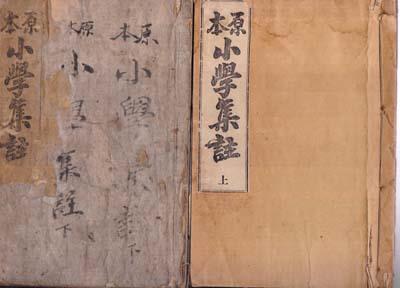 原本小學集註
上
原本小學集註下
原本小學集註下
原本小學集註